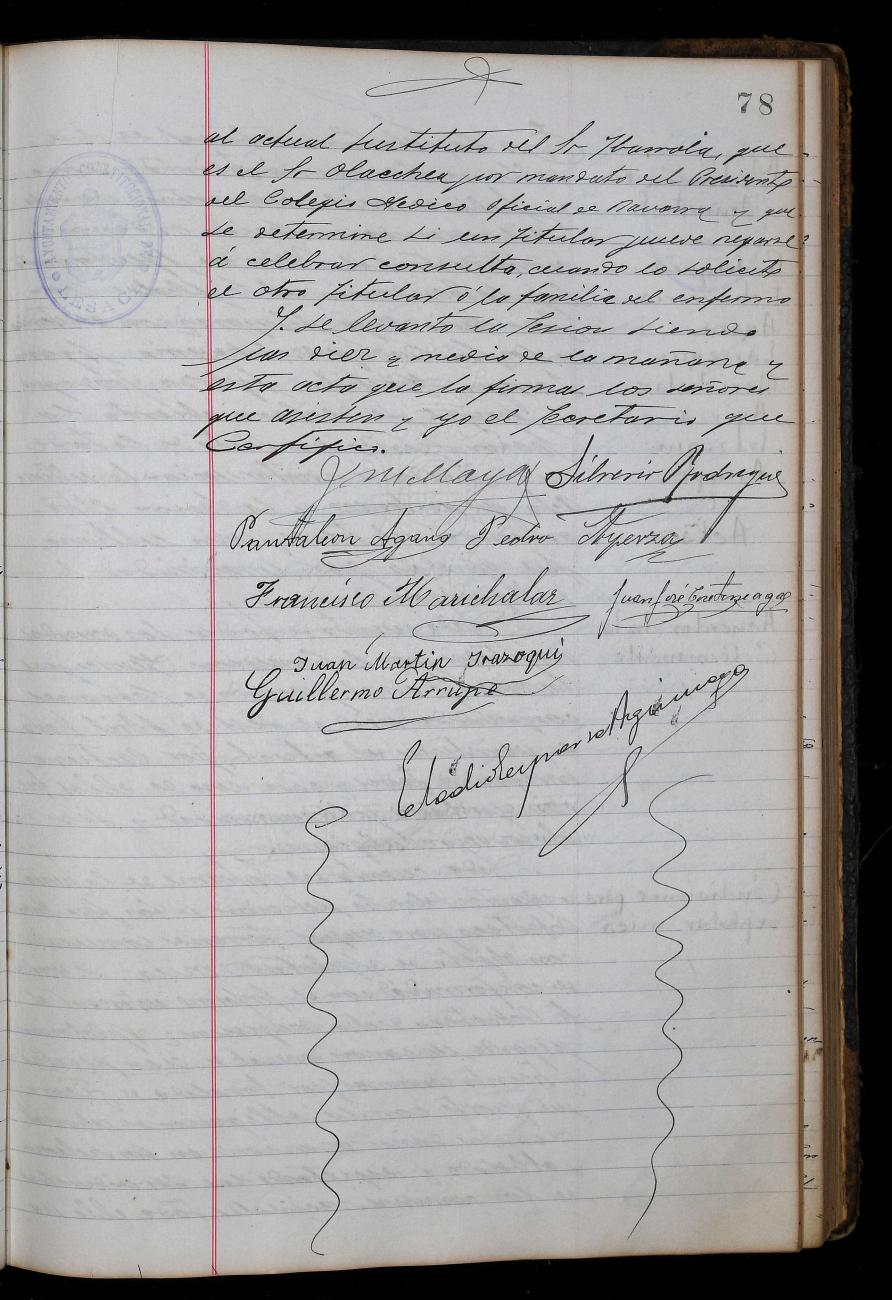 78
al actual sustituto del Sr Ibarrola, que
es el Sr Olacchea, por mandato del Presidente
del Colegio Médico Oficial de Navarra y que
se determine si un titular puede negarse
á celebrar consulta, cuando lo solicite
el otro titular ó la familia del enfermo
Y se levantó la sesion siendo
las diez y media de la mañana y
esta acta que la firman los señores
que asisten y yo el Secretario que
Certifico.
Maya Silverio Rodriguez
Pantaleon Pedro
Francisco Marichalar Juan José
Juan Martin Irazoqui
Guillermo Arrupe
Eladio Esparza Aguinaga
AYUNTAMIENTO CONSTITUCIONAL DE
LESACA